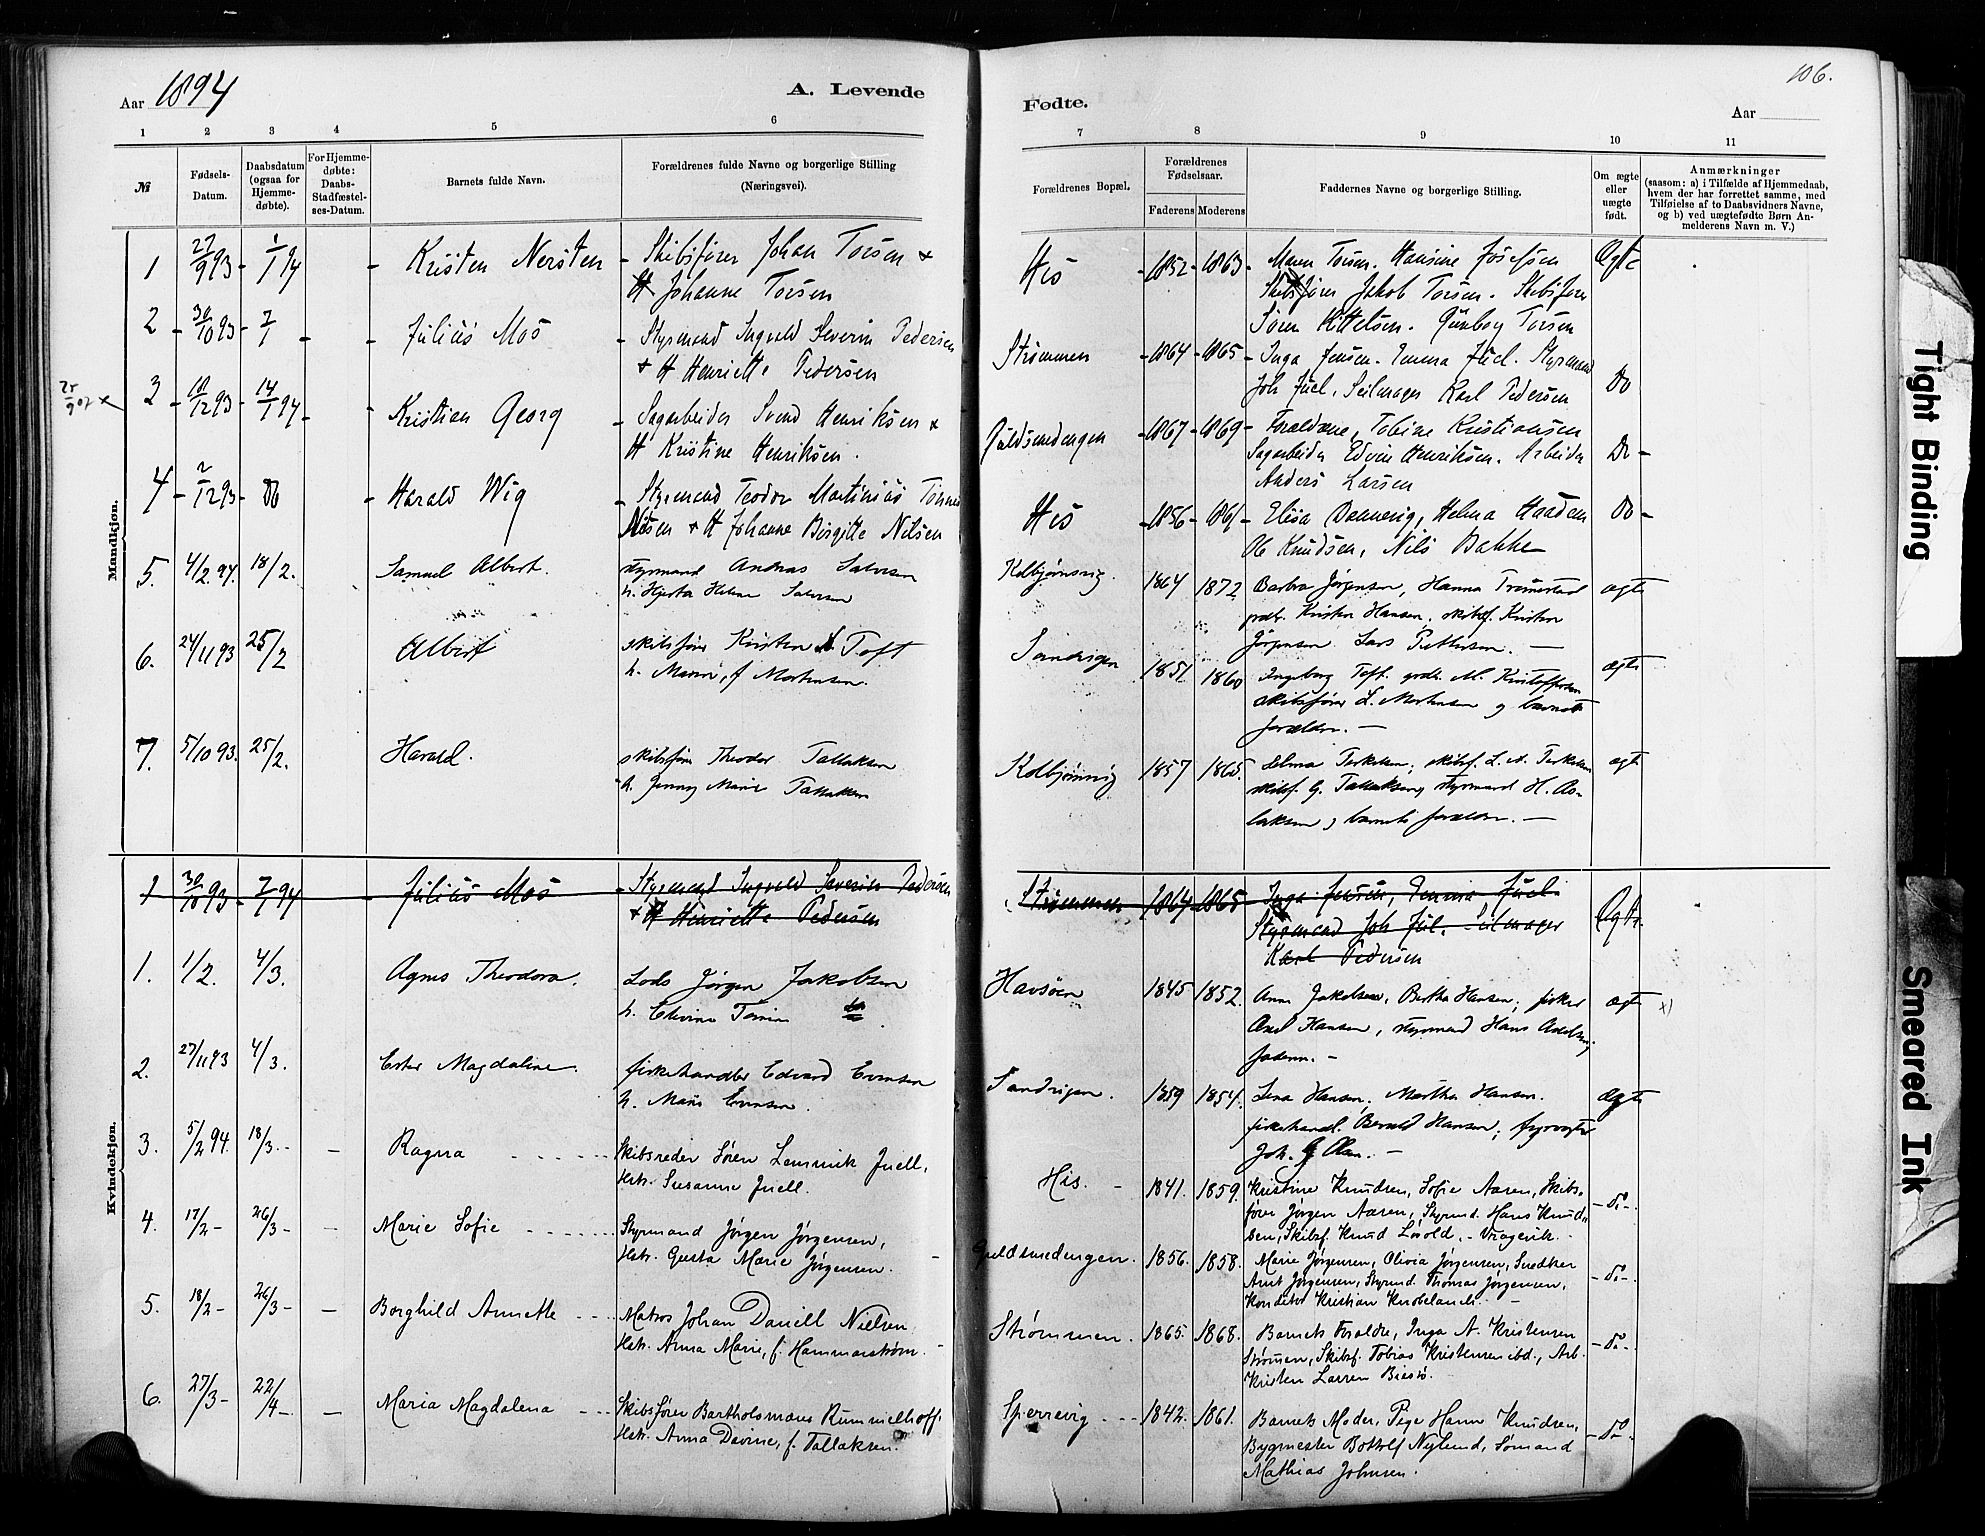 Aar 1894
A. Levende
Fødte.
106.
Aar
1 2 3 4 5 6 7 8 9 10 11
№
Fødsels-
Datum.
Daabsdatum
(ogsaa for
Hjemme-
døbte).
For Hjemme-
døbte:
Daabs-
Stadfæstel-
ses-Datum.
Barnets fulde Navn.
Forældrenes fulde Navne og borgerlige Stilling
(Næringsvei).
Forældrenes Bopæl.
Forældrenes
Fødselsaar.
Faderens Moderens
Faddernes Navne og borgerlige Stilling.
Om ægte
eller
uægte
født.
Anmærkninger
(saasom: a) i Tilfælde af Hjemmedaab,
hvem der har forrettet samme, med
Tilføielse af to Daabsvidners Navne,
og b) ved uægtefødte Børn An-
melderens Navn m. V.)
Mandkjøn.
1 27/9 93 - 1/1 94 - Kristen Nersten - Skibsfører Johan Torsen +
H Johanne Torsen
His - 1852 - 1863 - Maren Torsen. Hansine Josefsen Ægte
Skibsfører Jakob Torsen. Skibsfører
Søren Kittelsen. Gunborg Torsen
2 - 30/10 93 - 7/1 - - Julius Moss - Styrmand Ingvald Severin Pedersen
+ H Henriette Pedersen
Strømmen - 1864 - 1865 - Inga Jensen. Emma Juel. Styrmand
Joh Juel, Seilmager Karl Pedersen Do
3 - 18/12 93 - 14/1 94 - - Kristian Georg - Sagarbeider Svend Henriksen +
H Kristine Henriksen.
Guldsmedengen - 1867 - 1869 - Forældrene, Tobine Kristiansen
Sagarbeider Edvin Henriksen. Arbeider Do -
Anders Larsen
4 - 2/12 93 - Do - Harald Wig - Styrmand Teodor Martinius Tønnes
Nilsen + H Johanne Birgitte Nilsen
His - 1856 - 1861 - Elisa Dannevig, Helma Haaden Do -
Ole Knudsen, Nils Bakke
5. 4/2 94. 18/2. Samuel Albert. styrmand Andreas Salvesen
h. Hjerta Helene Salvesen
Kolbjørnsvig. 1864 1872 Barbra Jørgensen, Hanna Tromestad ægte
gmdbr. Kristen Hansen, skibsf. Kristen
Jørgensen Lars Pettersen. —
6. 24/11 93 25/2 Albert skibsfører Kristen Toft
h. Marie, f Mortensen.
Sandvigen 1851 1860 Ingeborg Toft. M. Kristoffersen ægte
skibsfører L. Mortensen og barnets
forældre. —
7. 5/10 93. 25/2. Harald. skibsfører Theodor Tallaksen
h. Jenny Marie Tallaksen
Kolbjørnsvig 1857 1865. Selma Terkelsen, skibsf. L. A. Terkelsen ægte
skibsf. G. Tallaksen, styrmand H. As-
laksen og barnets forældre. —
Kvindekjøn.
1 30/10 93 - 7/1 94 - Julius Moss - Styrmand Ingvald Severin Pedersen
+ H Henriette Pedersen
Strømmen 1864 - 1865 - Inga Jensen, Emma Juel. Ægte.
Styrmand Joh Juel. Seilmager
Karl Pedersen
1. 1/2. 4/3. Agnes Theodora. Lods Jørgen Jakobsen
h. Elevine
Havsøen 1845 1852. Anna Jakobsen, Bertha Hansen; fisker ægte x)
Axel Hansen, styrmand Hans Axelsen,
faderen. -
2. 27/11 93 4/3. Ester Magdaline. fiskehandler Edvard Evensen
h. Marie Evensen.
Sandvigen. 1859 1854. Lina Hansen, Martha Hansen. ægte
fiskehandl. Bernald Hansen; fyrvogter
Joh. G. Olsen. —
3. 5/2 94. 18/3 - - Ragna - - - Skibsreder Søren Lemmik Juell,
Hstr. Susanne Juell.
His. - 1841. 1859. Kristine Knudsen, Sofie Aasen, Skibs-
fører Jørgen Aasen, Styrmd. Hans Knud- - do -.
sen, Skibsf. Knud Løvold, -
4. 17/2 - 26/3 - - Marie Sofie - - - Styrmand Jørgen Jørgensen,
Hstr. Gusta Marie Jørgensen.
Guldsmedengen. 1856. 1858. Marie Jørgensen, Olivia Jørgensen, Snedker
Arnt Jørgensen, Styrmd. Thomas Jørgensen, - do -.
Konditor Kristian Knobelauch. -
5. 18/2 - 26/3 - - Borghild Annette - - - Matros Johan Daniell Nielsen
Hstr. Anna Marie, f. Hammarstrøm.
Strømmen. 1865. 1868. Barnets Forældre, Inga A. Kristensen
Strømmen, Skibsf. Tobias Kristensen ibd., Arb. - do -.
Kristen Larsen Biesø.
6. 27/3 - 22/4 - - Maria Magdalena - - - Skibsfører Bartholomæus Rummelhoff,
Hstr. Anna Davine, f. Tallaksen.
Sperrevig - - 1842. 1861. Barnets Moder, Pige Hanne Knudsen,
Bygmester Bottolf Nylund, Sømand - do -.
Mathias Johnsen.
Tight Binding
Smeared Ink